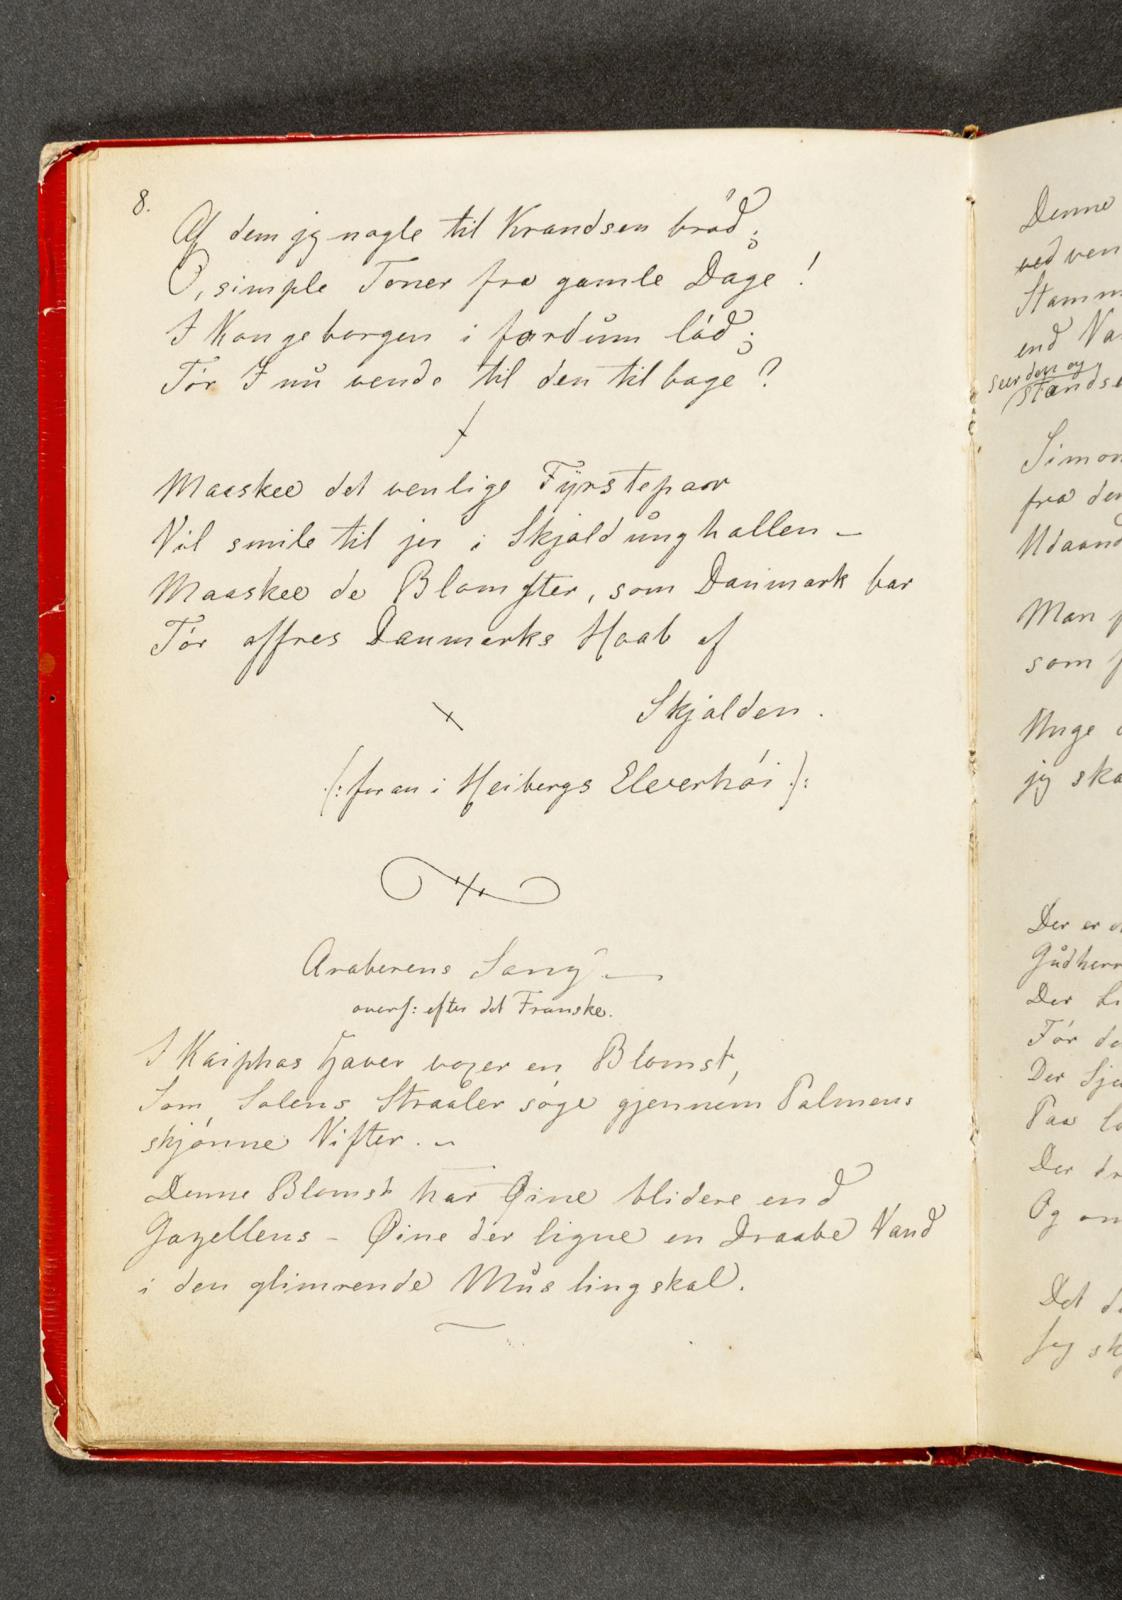 8.
Af dem jeg nogle til Krandsen brød;
O, simple Toner fra gamle Dage!
I Kongeborgen i fordum lød;
Tør I nu vende til den tilbage?
Maaskee det venlige Fyrstepaar
Vil smile til jer i Skjoldunghallen –
Maaskee de Blomster, som Danmark bar
Tør offres Danmarks Haab af
Skjalden.
(: foran i Heibergs Elverhøi :)
Araberens Sang –
overs: efter det Franske.
I Kaiphas Haver voxer en Blomst,
Som Solens Straaler søge gjennem Palmens
skjønne Vifter. –
Denne Blomst har Øine blidere end
Gazellens – Øine der ligne en Draabe Vand
i den glimrende Muslingskal.
Denne
ved ven
Stamm
end Va
seer den og
standse
Simon
fra den
Udaand
Man f
som f
Unge
jeg ska
Der er
Gudherr
Der
Før de
Der Sjæ
Paa
Der dr
Og om
Det d
Jeg sk